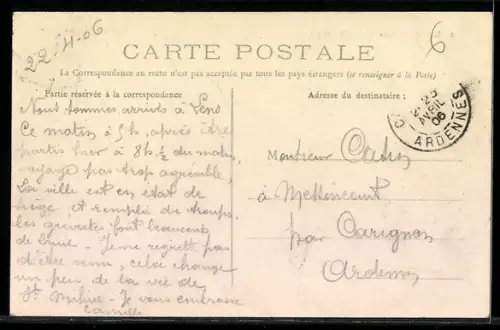 22-4-06
6
CARTE POSTALE
La Correspondance au recto n'est pas acceptée par tous les pays étrangers (se renseigner à la Poste)
Partie réservée à la correspondance
Adresse du destinataire :
Nous sommes arrivés à Lens
Ce matin à 5h, après être
partis hier à 8h ½ du matin,
voyage pas trop agréable,
La ville est en état de
siège et remplie de troupes,
les grévistes font beaucoup
de bruit - Je ne regrette pas
d'être venu, cela change
un peu de la vie de
St - Je vous embrasse
Camille
Monsieur
à
par Carignan
Ardennes
AVRIL
06
ARDENNES